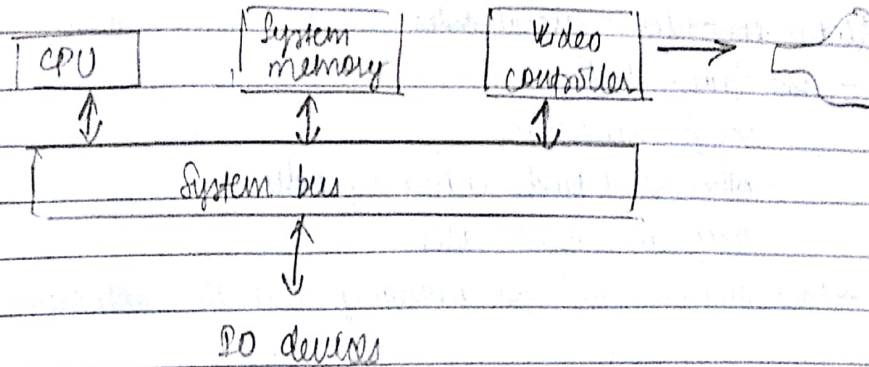 CPU
System
memory
Video
controller
System bus
IO devices